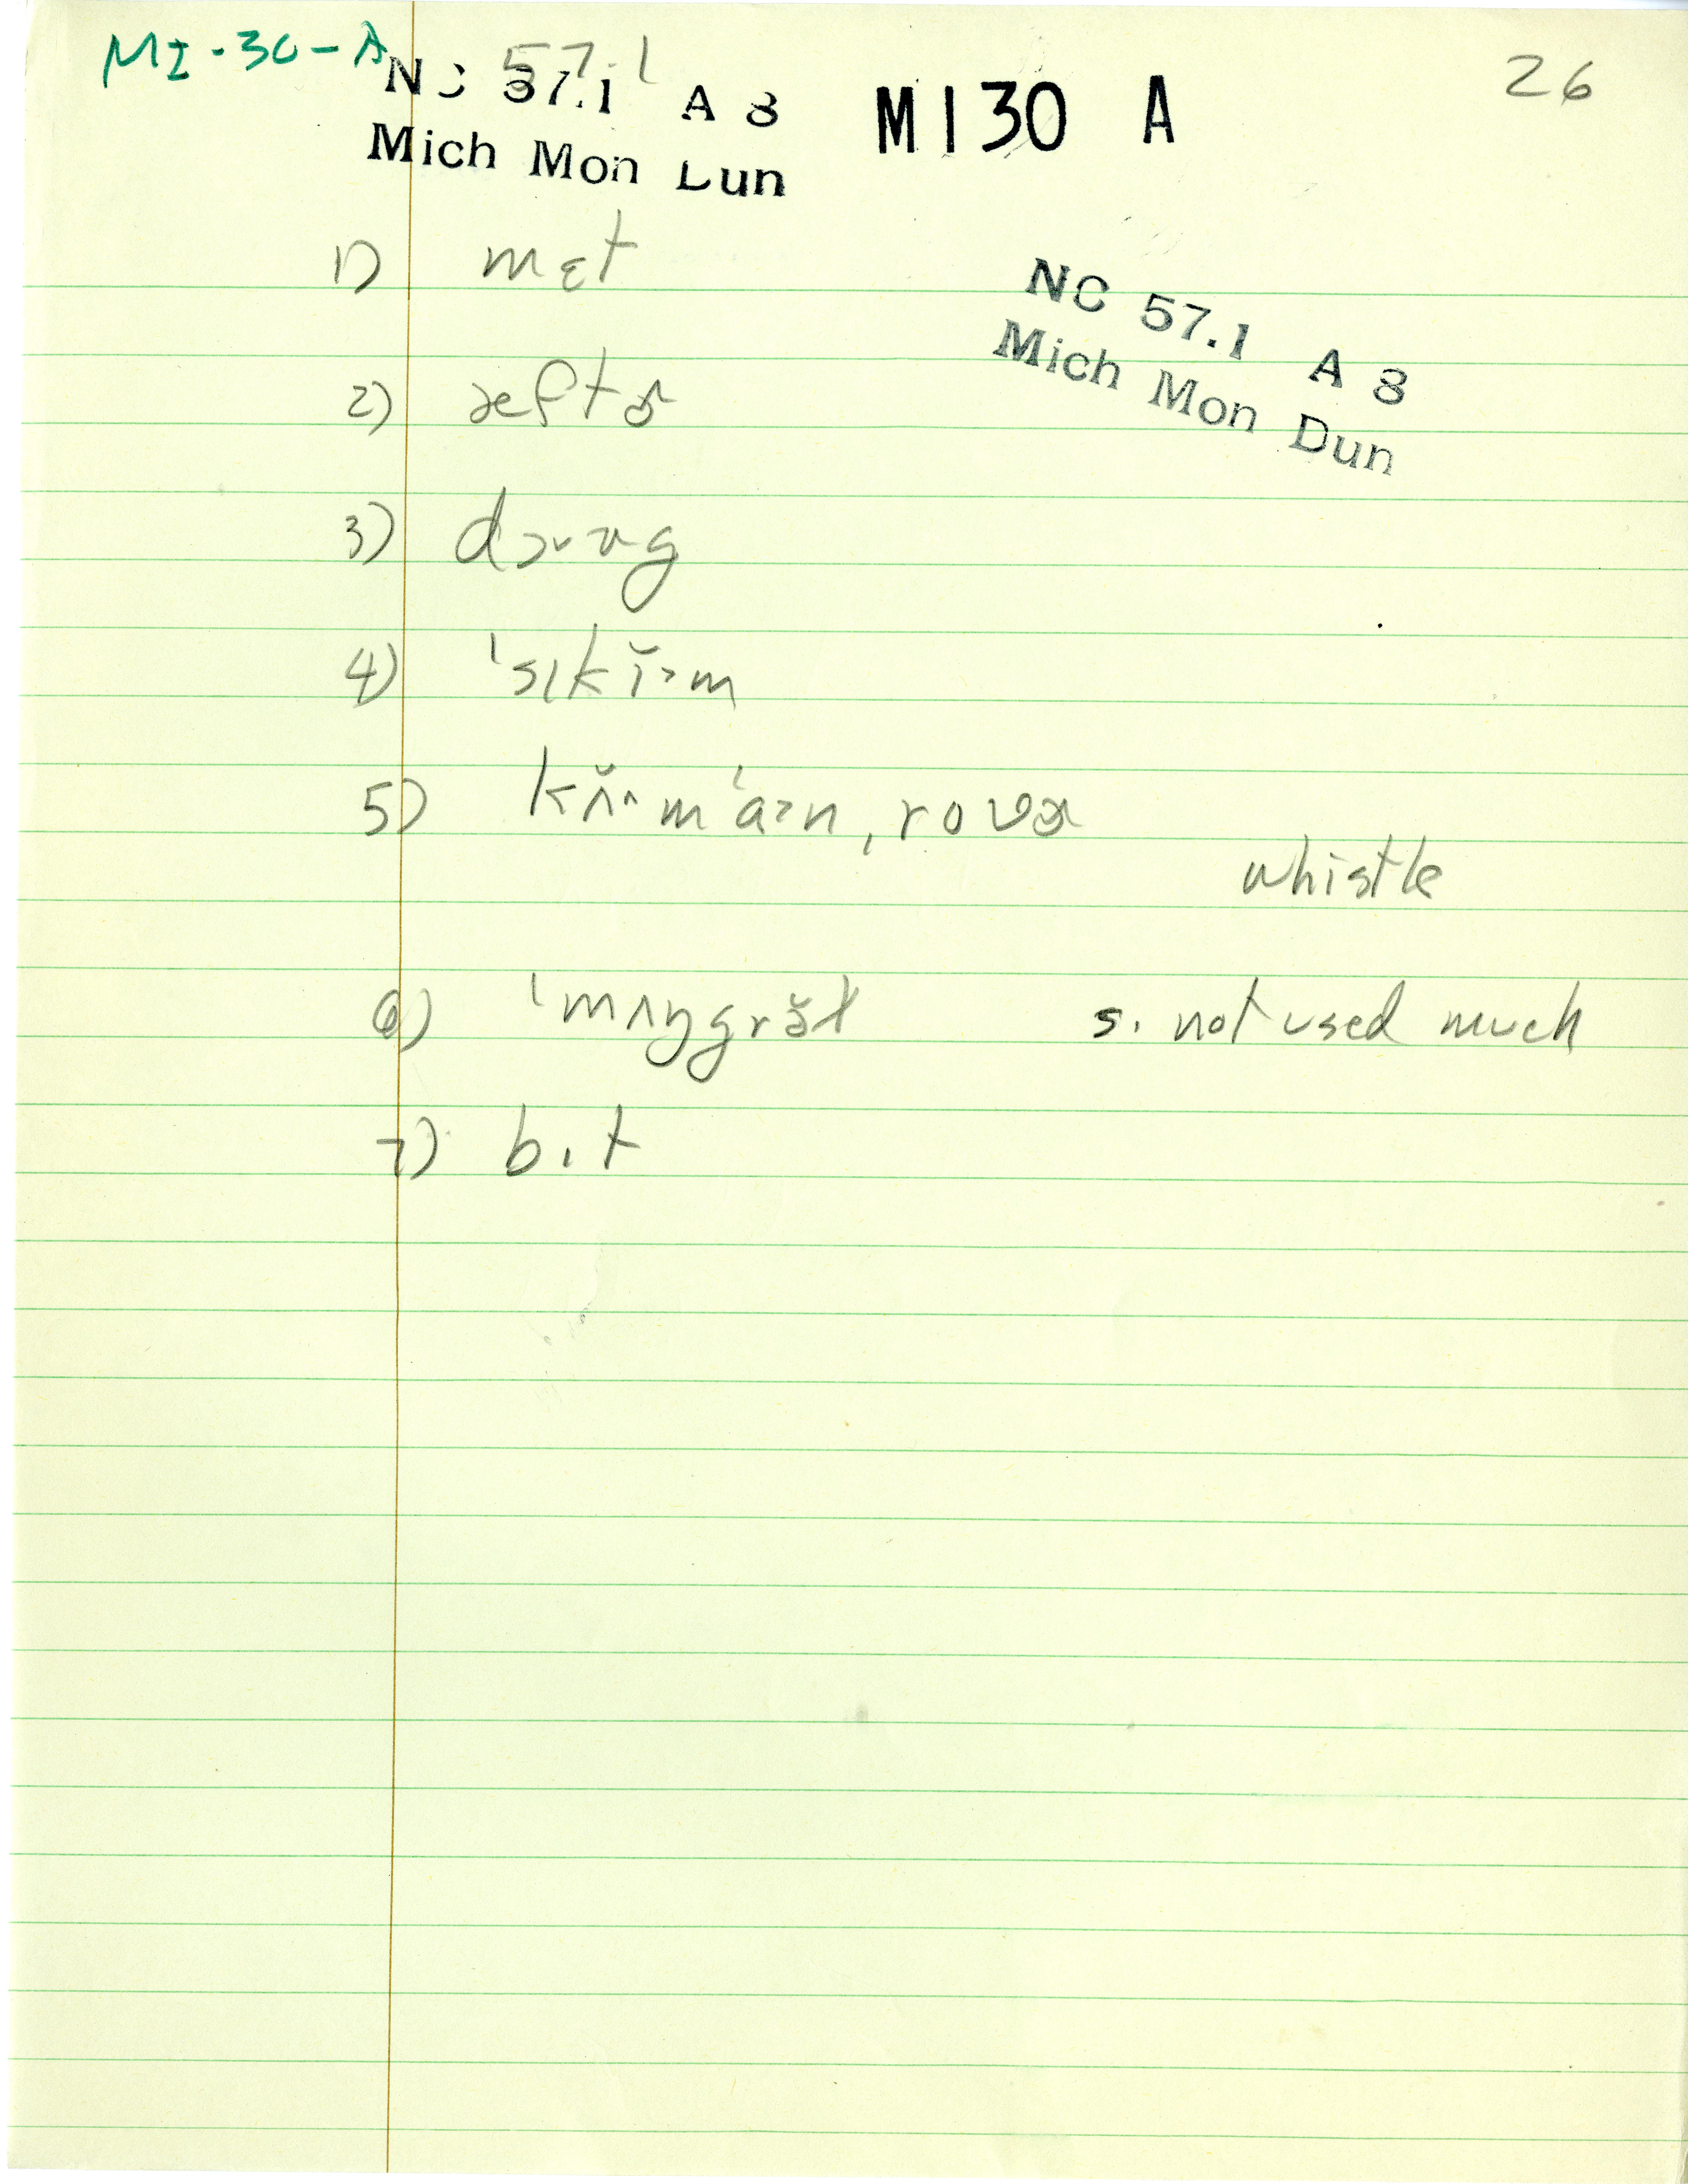 MI-30-A
57.1
26
NC 57.1 A 8
MI30 A
Mich Mon Dun
NC 57.1 A 8
Mich Mon Dun
1) mɛt
2) æftɚ
3)
4)
5)
whistle
6) s. not used much
7) bɪt